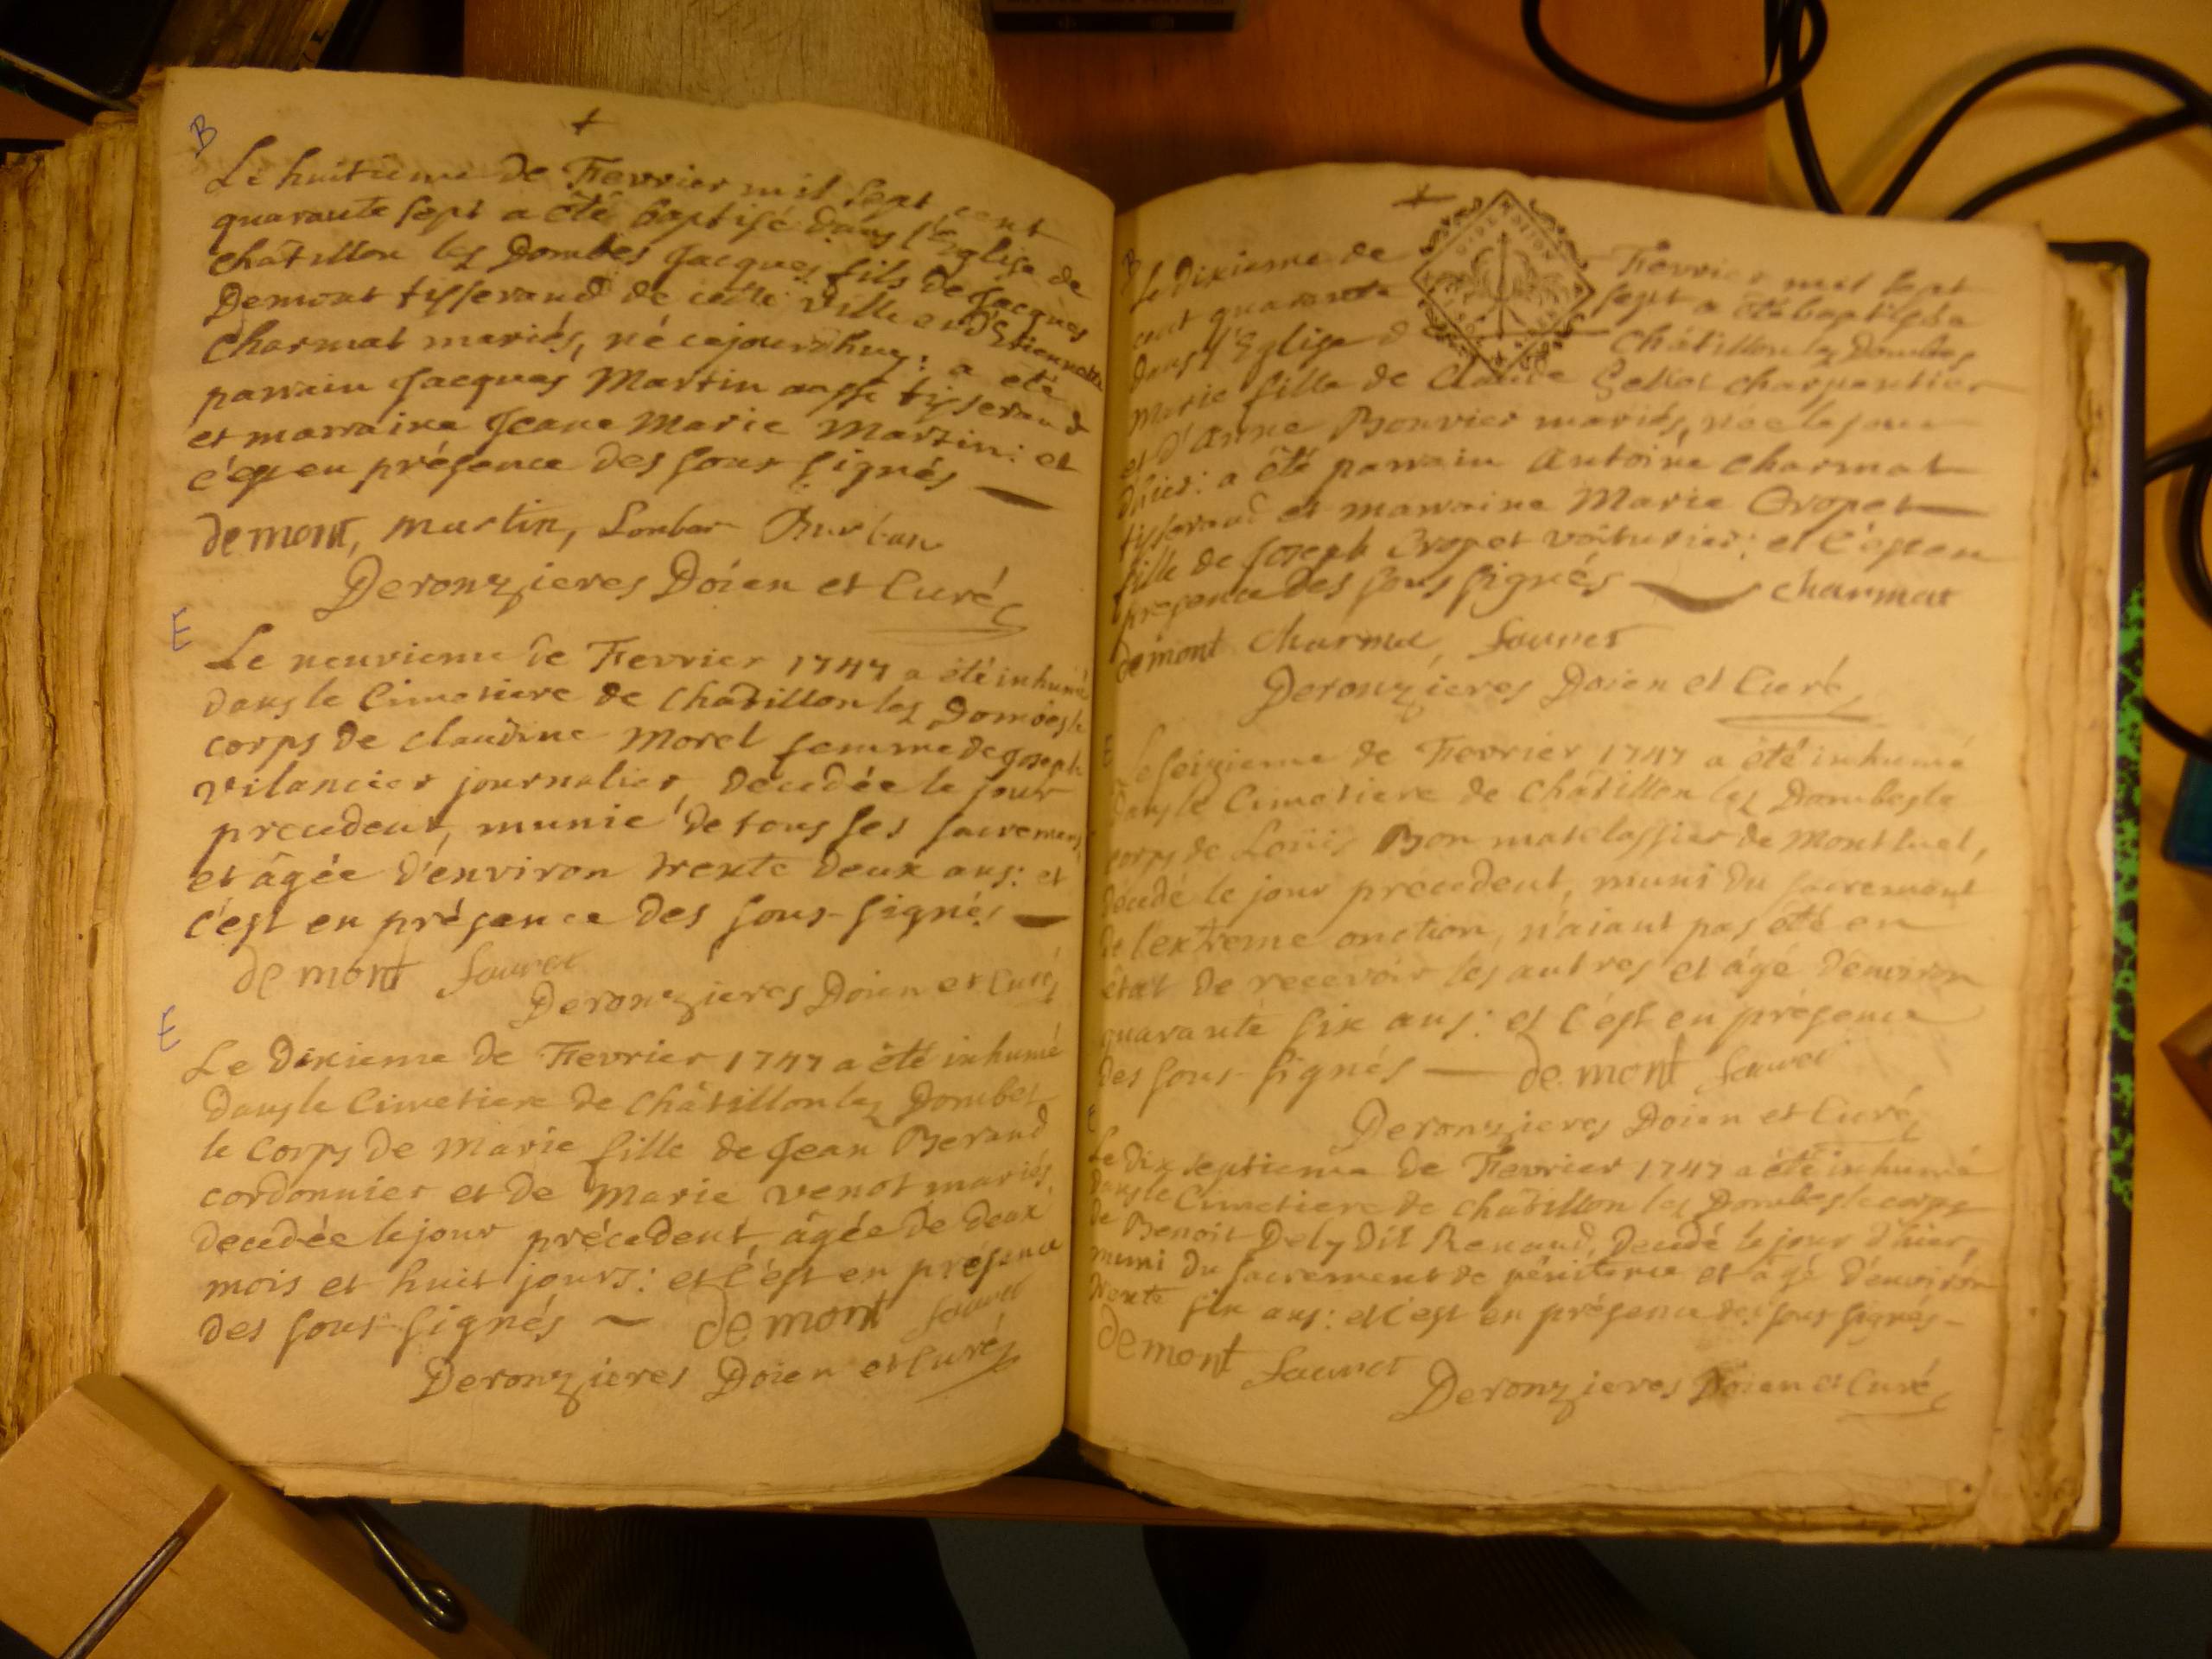 B
Le huitieme de Fevrier mil sept cent
quarante sept a été baptisé dans l'Eglise de
châtillon les Dombes Jacques fils de Jacques
Demont tisserand de cette ville et d'Etiennette
Charmat mariés, né cejourdhuy: a été
parrain Jacques Martin aussi tisserand
et marraine Jeane Marie Martin: et
c'est en présence des sous signés
demont, martin,
Deronzieres Doien et Curé
E
Le neuvieme de Fevrier 1747 a été inhumé
dans le Cimetiere de Châtillon les Dombes le
corps de claudine Morel femme de Joseph
vilancier journalier, decedée le jour
precedent, munie de tous ses sacremens,
et âgée d'environ trente deux ans: et
c'est en présence des sous-signés
demont Sauvet
Deronzieres Doien et Curé
E
Le Dixieme de Fevrier 1747 a été inhumé
dans le Cimetiere de Châtillon les Dombes
le Corps de Marie fille de Jean Beraud
cordonnier et de Marie venot mariés,
decedée le jour précedent, âgée de deux
mois et huit jours: et c'est en présence
des sous-signés demont Sauvet
Deronzieres Doien et Curé
B
Le Dixieme de Fevrier mil sept
cent quarante sept a été baptisée
dans l'Eglise de Châtillon les Dombes
Marie fille de Claude charpentier
et d'Anne Bouvier mariés, née le jour
d'hier: a été parrain Antoine Charmat
tisserand et marraine Marie Cropet
fille de Joseph Cropet voiturier: et c'est en
presence des sous signés charmat
demont Sauvet
Deronzieres Doien et Curé
E
Le seizieme de Fevrier 1747 a été inhumé
dans le Cimetiere de Châtillon les Dombes le
corps de Loüis Bon matelassier de Montluel,
décedé le jour précedent, muni du sacrement
de l'extreme onction, n'aiant pas été en
état de recevoir les autres et âgé d'environ
quarante six ans: et c'est en présence
des sous-signés demont Sauvet
Deronzieres Doien et Curé
E
Le Dix septieme de Fevrier 1747 a été inhumé
dans le Cimetiere de Châtillon les Dombes le corps
de Benoit Dely Dit Renaud, decedé le jour d'hier,
muni du sacrement de pénitence et âgé d'environ
trente six ans: et c'est en présence des sous signés
demont Sauvet Deronzieres Doien et Curé